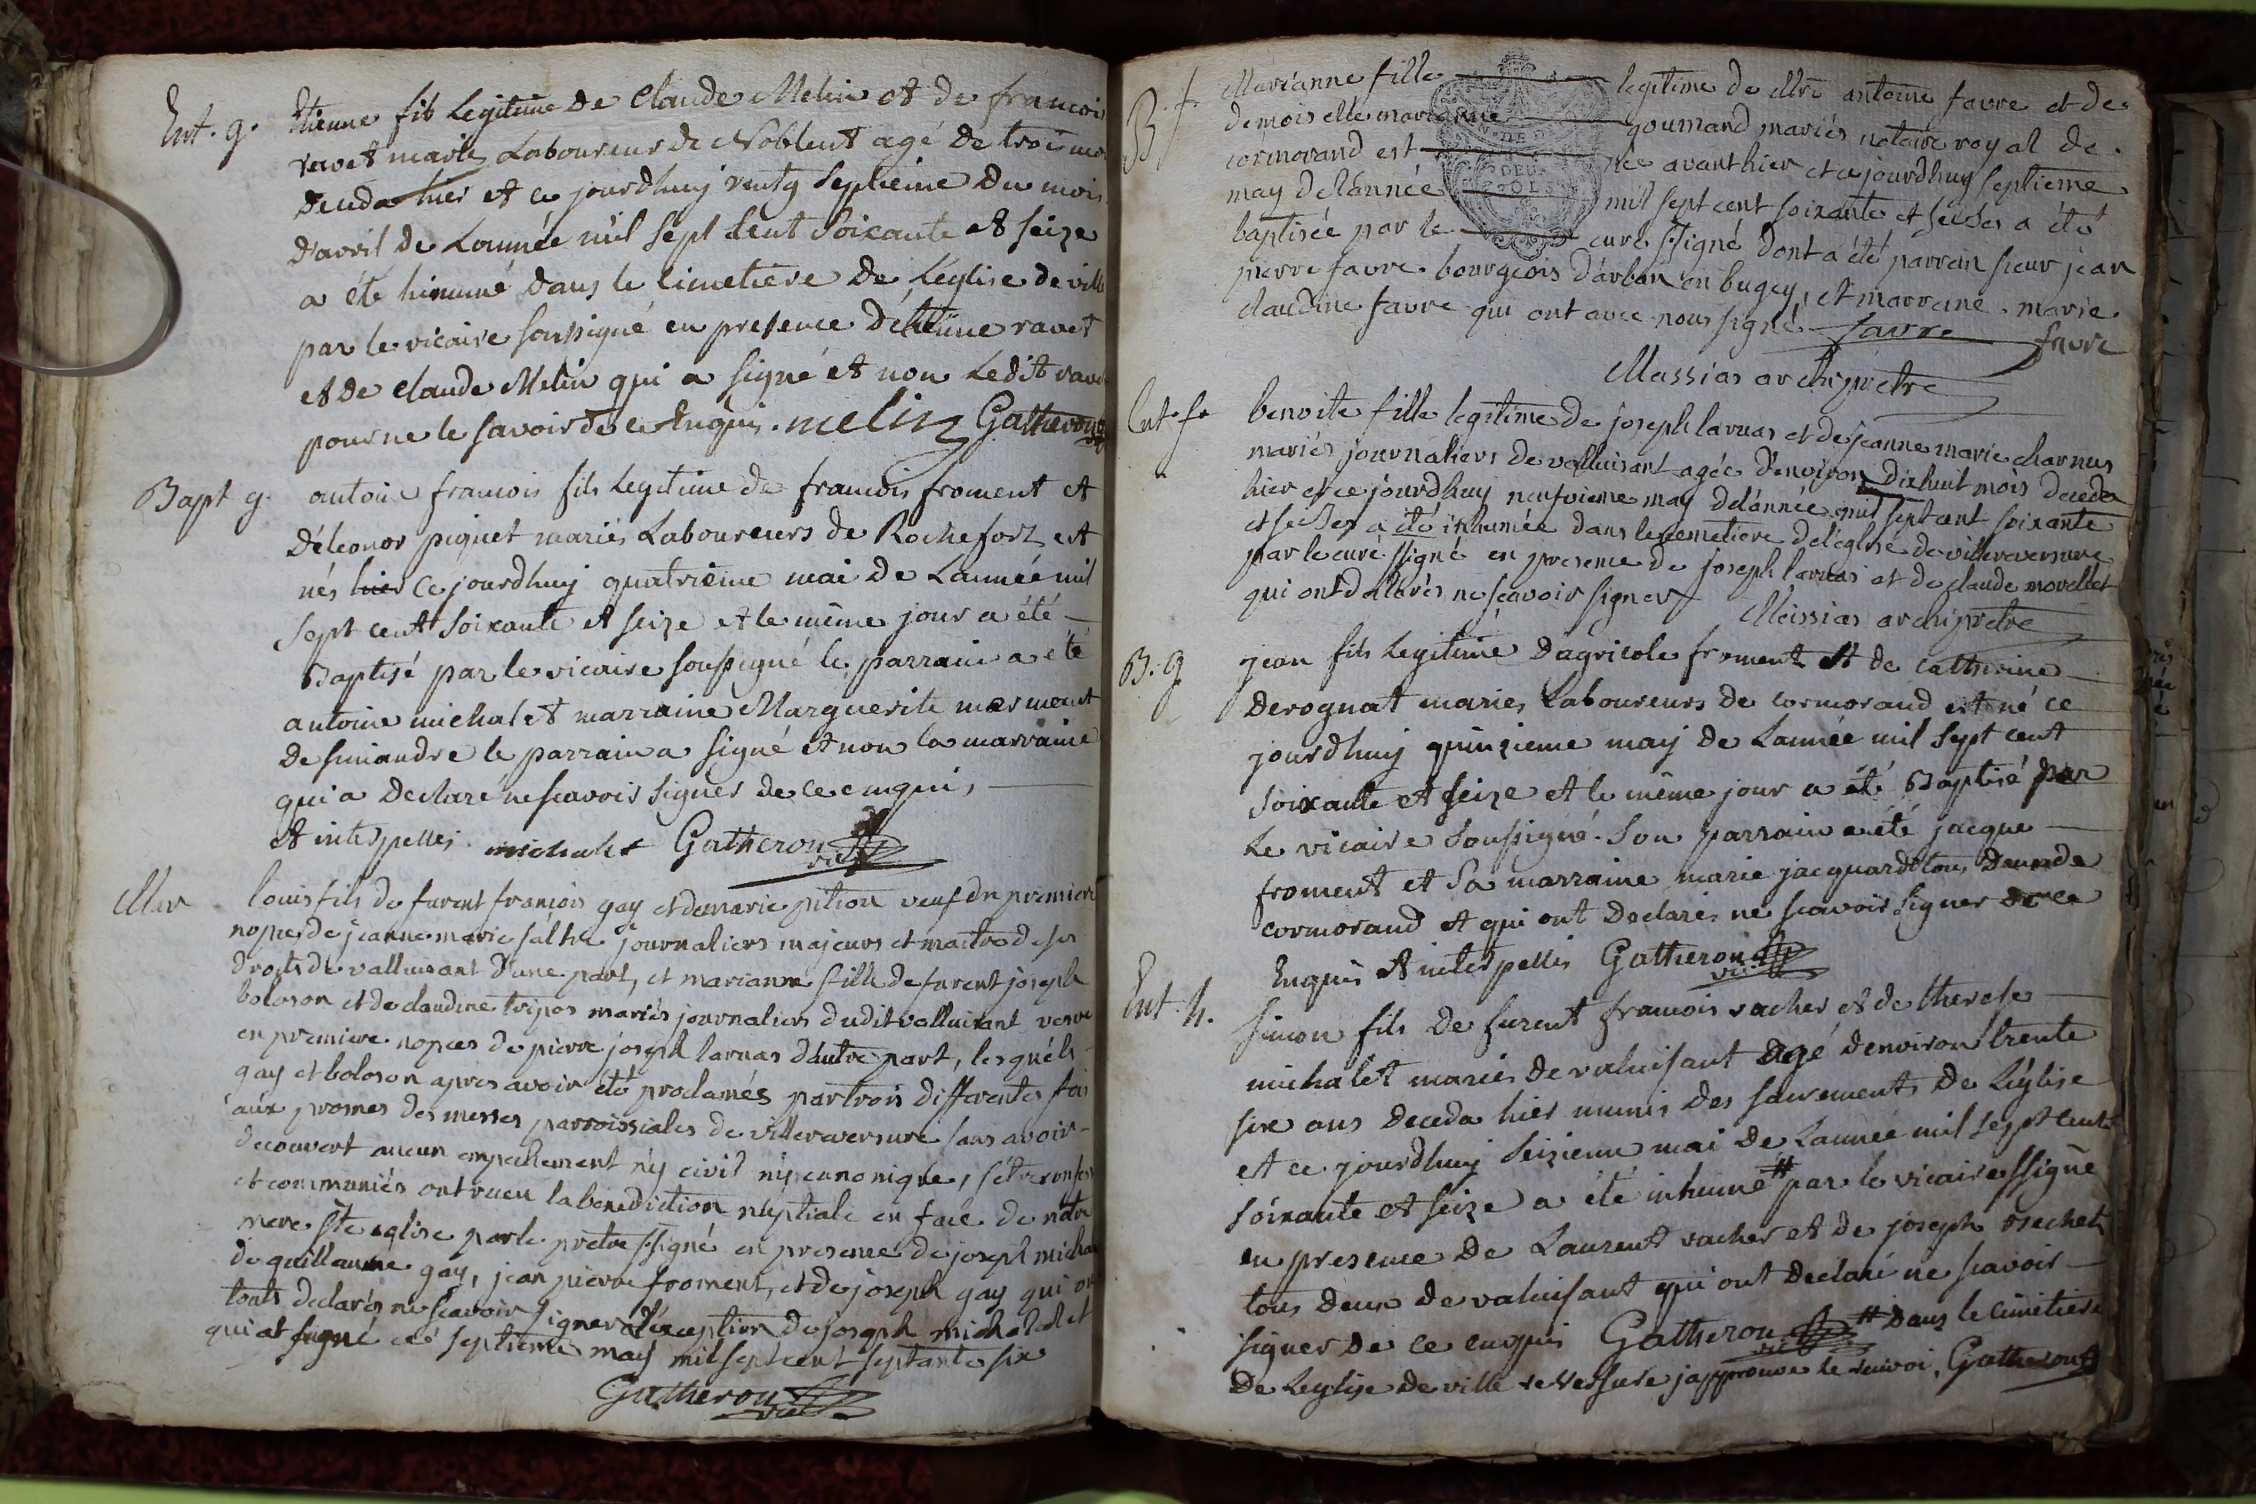 Ent. g. Etienne fils Legitime de Claude Melin et de francois
ravet mariés Laboureurs de Noblent agé de trois mois
deceda hier et ce jourdhuy ventg septieme du mois
d'avril de L'année mil sept Cent Soixante et seize
a été hinumé dans le Cimetiere de Leglise de ville
par le vicaire soussigné en presence d'étiene ravet
et de Claude Melin qui a signé et non Ledit ravet
pour ne le savoir de ce Enquis. melin Gatheron
Bapt g. antoine francois fils Legitime de francois froment et
d'éleonor piquet mariés Laboureurs de Rochefort est
nés hier ce jourdhuy quatrieme mai de Lannée mil
sept cent soixante et seize et le même jour a été
Baptisé par le vicaire soussigné le parrain a été
antoine michalet et marraine Marguerite mermont
de simandre le parrain a signé et non la marraine
qui a declaré ne scavoir signer de ce enquis,
et interpellés. michalet Gatheron vic
Mar louis fils de furent françois gay et de marie pition veuf dn premiere
nopces de jeanne marie faltre journaliers majeurs et maitre de ses
droits de valluisant d'une part, et marianne fille de furent joseph
boloson et de claudine tripos mariés journaliers dudit valluisant veuve
en premiere nopces de pierre joseph larnas dautre part, lesquels
gay et boloson apres avoir été proclamés par trois differentes fois
aux prosnes des messes parroissiales de villereversure sans avoir
decouvert aucun empechement n'y civil n'y canonique, s'étre confes
et communiés ont recu la benediction nuptiale en face de notre
mere ste eglise par le pretre ssigné en presence de joseph micha
de guillaume gay, jean pierre froment, et de joseph gay qui on
touts declarés ne scavoir signer a l'exception de joseph michalet
qui at signé ce septieme may mil sept cent septante six
Gatheron vic
B. f. Marianne fille legitime de Mre antoine favre et de
demoiselle marianne goumand mariés notaire royal de
cormorand est née avanthier et cejourdhuy septieme
may delannée mil sept cent soixante et seizes a été
baptisée par le curé ssigné dont a été parrein sieur jean
pierre favre bourgeois d'arban en bugey, et marreine marie
claudine favre qui ont avec nous signé. favre favre
Massias archipretre
Ent. f. benoite fille legitime de joseph larnas et de jeanne marie charnus
mariés journaliers de valluisant agée d'environ dixhuit mois deceda
hier et ce jourdhuy neufvieme may delannée mil sept cent soixante
et seizes a été inhumée dans le cemetiere de l'église de villereversure
par le curé ssigné en presence de joseph larnas et de claude morellet
qui ont déclarés ne sçavoir signer Massias archipretre
B. g jean fils Legitime d'agricole froment et de catherine
derognat maries Laboureurs de cormorand est né ce
jourdhuy quinzieme maij de Lannée mil sept cent
soixante et seize et le même jour a été Baptisé par
Le vicaire soussigné. Son parrain a été jacque
froment et Sa marraine marie jacquard tous deux de
cormorand et qui ont declarés ne scavoir signer de ce
Enquis et interpellis Gatheron vic
Ent. h. Simon fils de furent francois vacher et de therese
michalet mariés de valuisant agé d'environ trente
six ans deceda hier munis des sacrements de L'église
et ce jourdhuy Seizieme mai de Lannée mil sept cent
soixante et seize a été inhumé # par le vicaire ssigné
en presence de Laurent vacher et de joseph
tous deux de valuisant qui ont declaré ne scavoir
signer de ce enquis Gatheron vic # dans le cimetiere
de Leglise de ville reversure japprouve le renvoi, Gatheron